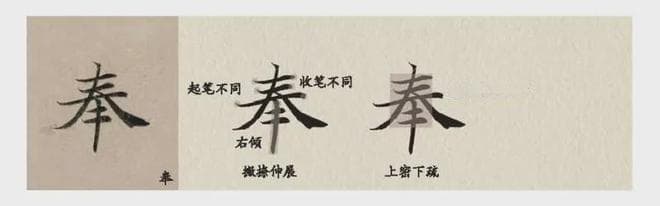 奉
奉
奉
奉
起笔不同
收笔不同
右倾
撇捺伸展
上密下疏